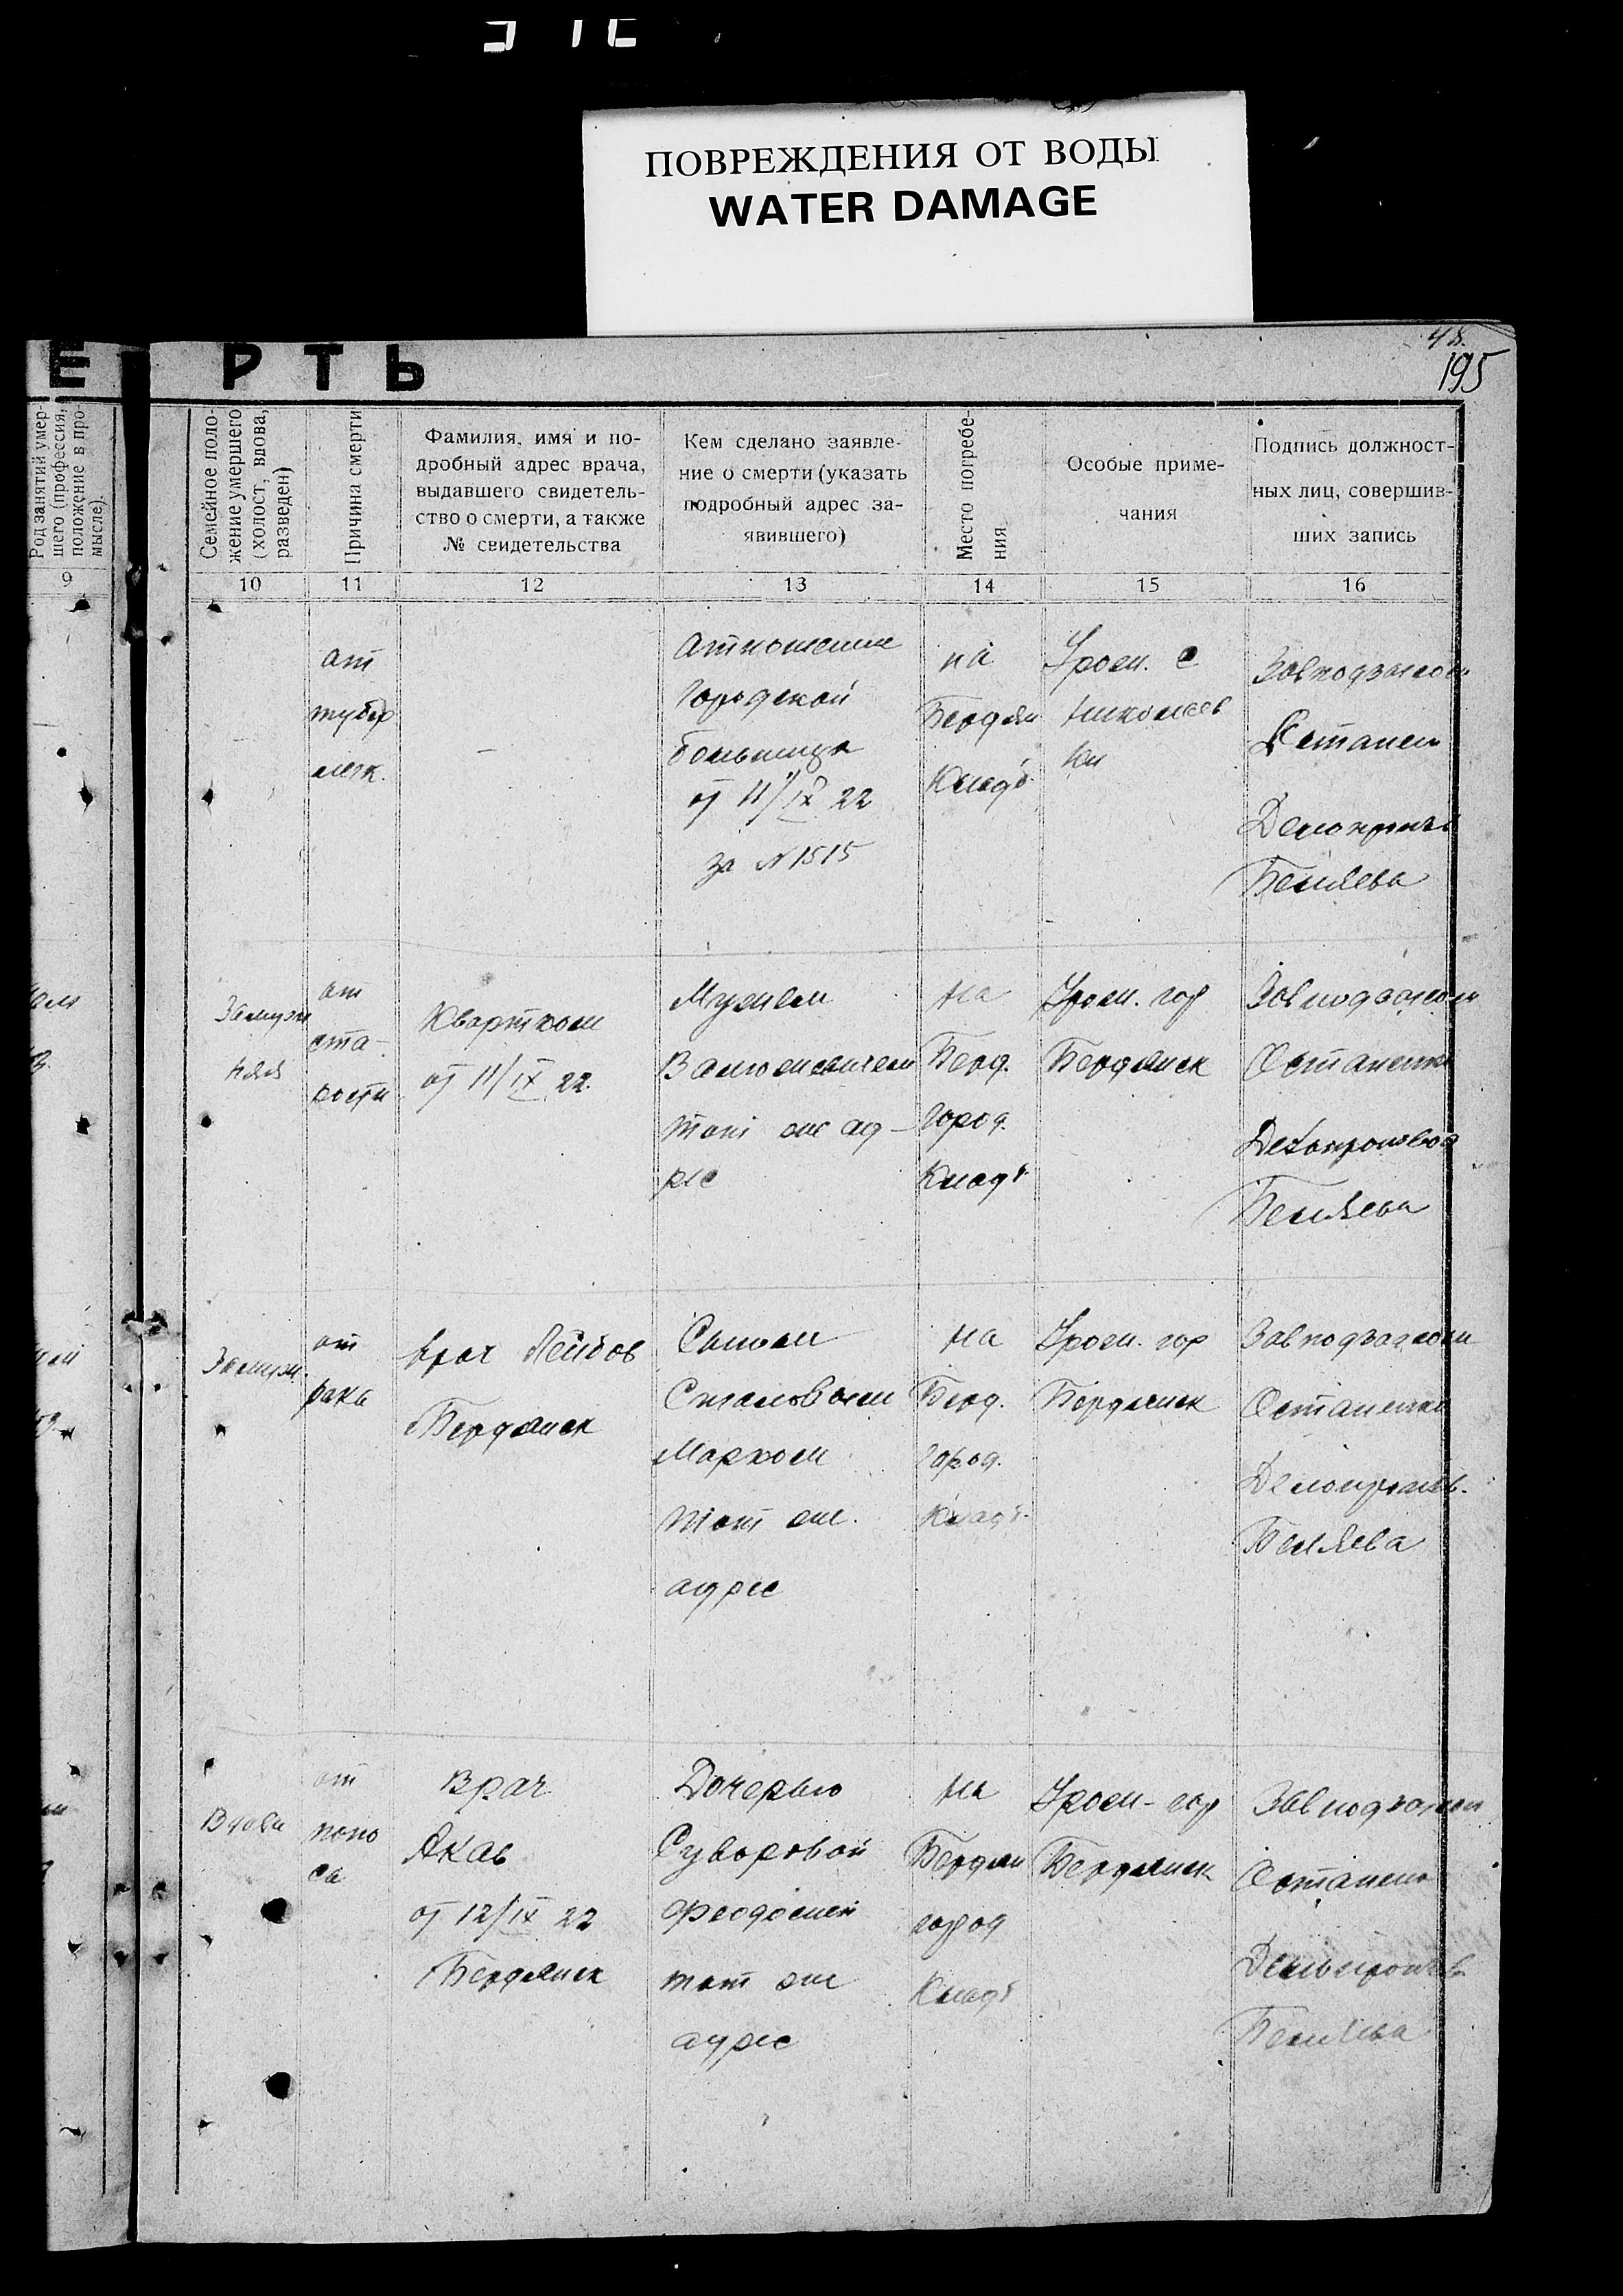 ПОВРЕЖДЕНИЯ ОТ ВОДЫ
WATER DAMAGE
48.
195
Е РТЬ
Род занятий умер-
шего (профессия,
положение в про-
мысле).
Семейное поло-
жение умершего
(холост, вдова,
разведен)
Причина смерти
Фамилия, имя и по-
дробный адрес врача,
выдавшего свидетель-
ство о смерти, а также
№ свидетельства
Кем сделано заявле-
ние о смерти (указать
подробный адрес за-
явившего)
Место погребе-
ния
Особые приме-
чания
Подпись должност-
ных лиц, совершив-
ших запись
9
10
11
12
13
14
15
16
ат
тубер
легк.
–
Атношение
Городской
больницы
от 11/IX 22
за N 1515
на
Бердян
Кладб.
Урож. с
Николаев
ки
Завподзагсом
Остапен
Белява
Замуж
няя
от
ста-
рости
Квартком
от 11/IX 22.
Мужем
тот же ад-
рес
на
Берд.
Город.
Кладб
Урож. гор
Бердянск
Завподзагсом
Остапенко
Делопроизвод
Беляева
Замуж.
от
рака
Врач Лейбов
Бердянск
Сыном
Марком
тот же.
адрес
на
Берд.
Город.
Кладб.
Урож. гор
Бердянск
Завподзагсом
Остапенко
Делопроизв.
Беляева
Вдова
от
поно
са
Врач
от 12/IX 22
Бердянск
Дочерью
Суворовой
Феодосией
тот же
адрес
на
Бердян
город
Кладб
Урож-гор
Бердянск
Завподзагсом
Остапен
Делопроизв
Беляева